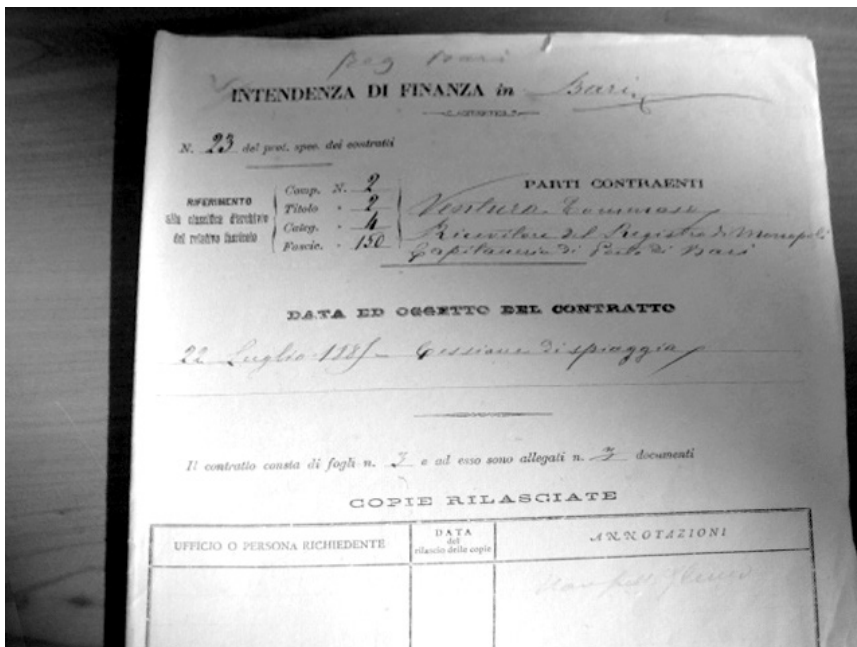 Reg Bari
INTENDENZA DI FINANZA in Bari
N. 23 del prot. spec. dei contratti
RIFERIMENTO
alla classifica d'archivio
del relativo fascicolo
Comp. N. 2
Titolo " 2
Categ. " 4
Fascic. " 150
PARTI CONTRAENTI
Ventura Tommaso
Ricevitore del Registro di Monopoli
Capitaneria di Porto di Bari
DATA ED OGGETTO DEL CONTRATTO
22 Luglio Cessione di spiaggia
Il contratto consta di fogli n. 3 e ad esso sono allegati n. 3 documenti
COPIE RILASCIATE
UFFICIO O PERSONA RICHIEDENTE
DATA
del
rilascio delle copie
ANNOTAZIONI